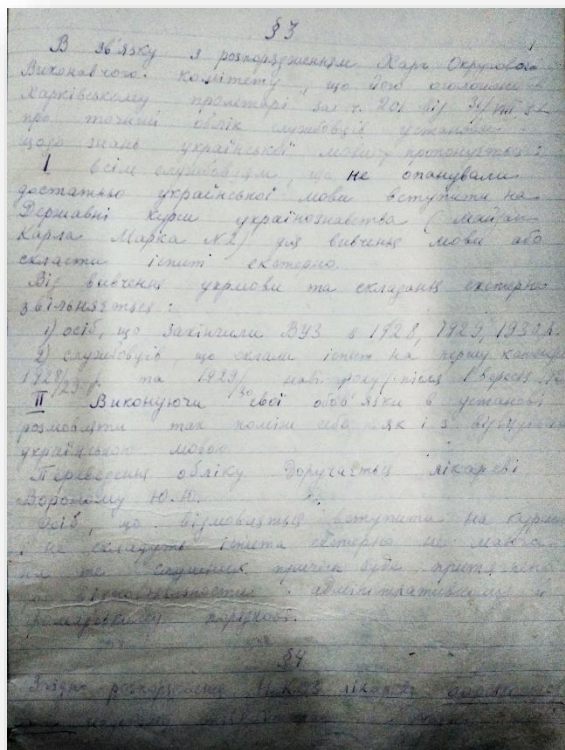 §3
В зв'язку з розпорядженням Харк Округового
Виконавчого комітету, що його оголошено в
Харківському пролетарі за ч. 201 від
про точний облік службовців установи
щодо знань української мови пропонується:
I всім службовцям, що не опанували
достатньо української мови вступити на
Державні Курси українознавства (майдан
Карла Маркса №2) для вивчення мови або
скласти іспит екстерно.
Від вивчення укрмови та складання екстерно
звільняється:
1) осіб, що закінчили ВУЗ в 1928, 1929, 1930 р.
2) службовців, що склали іспит на першу категорію
1928/29 р. та 1929/30 навч. року після 1 вересня
II Виконуючи свої обов'язки в установі
розмовляти так поміж себе як і з відвідувачами
українською мовою.
Переведення обліку доручається лікареві
Вороному Ю.Ю.
Осіб, що відмовляться вступити на курси
і не складуть іспита екстерно не маючи
на те причин буде притягнено
до відповідальности в адміністративному й
громадському порядкові.
§4
Згідно розпорядження лікарев